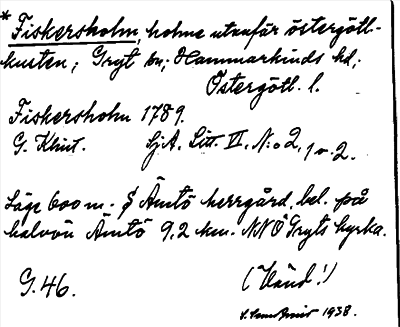 * Fiskersholm, holme utanför östergötl-
kusten; Gryt sn; Hammarkinds hd;
Östergötl. l.
Fiskersholm 1789.
G. Klint. Sj.A. Litt. VI, N:o 2, 1 o. 2.
Läge 600 m. S Ämtö herrgård, bel. på
halvön Ämtö 9,2 km. NNÖ Gryts kyrka.
G. 46. (Vänd!)
1938.